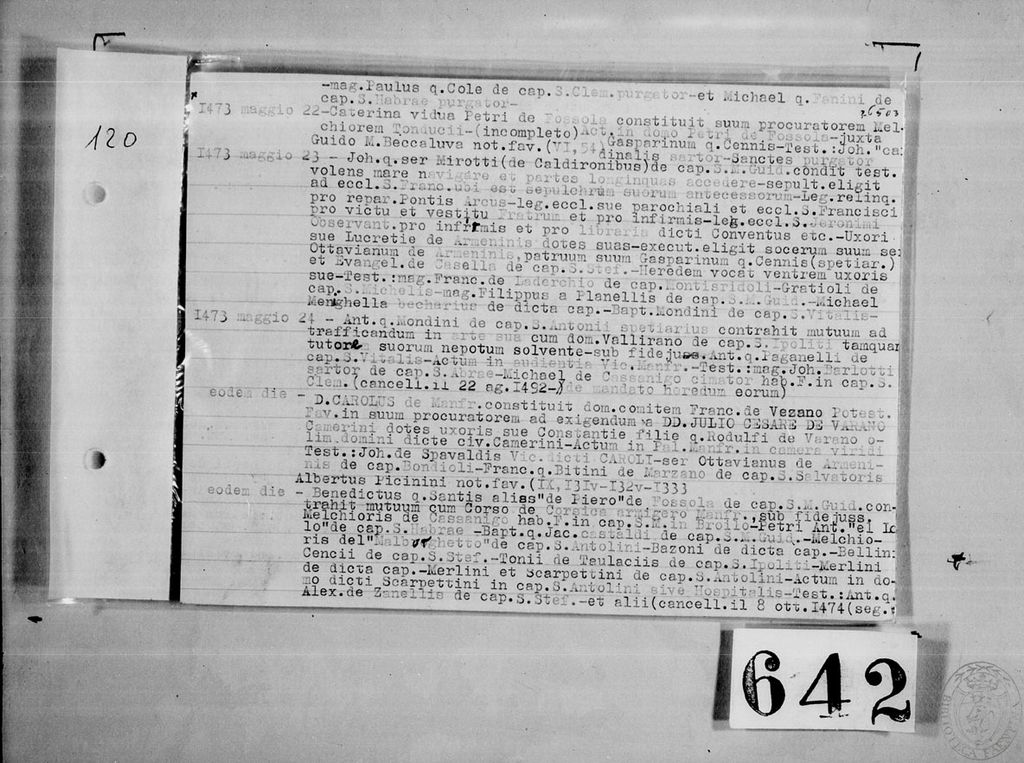 120
-mag.Paulus q.Cole de cap.S.Clem.purgator-et Michael q.Fanini de
cap.S.Habrae purgator-
1473 maggio 22-Caterina vidua Petri de Fossola constituit suum procuratorem Mel-
chiorem Tonducii-(incompleto)Act.in domo Petri de Fossola-juxta
Guido M.Beccaluva not.fav.(VI,54)Gasparinum q.Cennis-Test.:Joh."ca
dinalis sartor-Sanctes purgator
1473 maggio 23 - Joh.q.ser Mirotti(de Caldironibus)de cap.S.M.Guid.condit test.
volens mare navigare et partes longinquas accedere-sepult.eligit
ad eccl.S.Franc.ubi est sepulchrum suorum antecessorum-Leg.relinq.
pro repar.Pontis Arcus-leg.eccl.sue parochiali et eccl.S.Francisci
pro victu et vestitu Fratrum et pro infirmis-leg.eccl.S.Jeronimi
Observant.pro infirmis et pro libraria dicti Conventus etc.-Uxori
sue Lucretie de Armeninis dotes suas-execut.eligit socerum suum se:
Ottavianum de Armeninis,patruum suum Gasparinum q.Cennis(spetiar.)
et Evangel.de Casella de cap.S.Stef.-Heredem vocat ventrem uxoris
sue-Test.:mag.Franc.de Laderchio de cap.Montisridoli-Gratioli de
cap.S.Michelis-mag.Filippus a Planellis de cap.S.M.Guid.-Michael
Menghella becharius de dicta cap.-Bapt.Mondini de cap.S.Vitalis-
1473 maggio 24 - Ant.q.Mondini de cap.S.Antonii spetiarius contrahit mutuum ad
trafficandum in arte sua cum dom.Vallirano de cap.S.Ipoliti tamquam
tutore suorum nepotum solvente-sub fidejuss.Ant.q.Paganelli de
cap.S.Vitalis-Actum in audientia Vic.Manfr.-Test.:mag.Joh.Barlotti
sartor de cap.S.Abrae-Michael de Cassanigo cimator hab.F.in cap.S.
Clem.(cancell.il 22 ag.1492-)(de mandato heredum eorum)
eodem die - D.CAROLUS de Manfr.constituit dom.comitem Franc.de Vezano Potest.
Fav.in suum procuratorem ad exigendum a DD.JULIO CESARE DE VARANO
Camerini dotes uxoris sue Constantie filie q.Rodulfi de Varano o-
lim.domini dicte civ.Camerini-Actum in Pal.Manfr.in camera viridi
Test.:Joh.de Spavaldis Vic.dicti CAROLI-ser Ottavianus de Armeni-
nis de cap.Bondioli-Franc.q.Bitini de Marzano de cap.S.Salvatoris
Albertus Picinini not.fav.(IX,131v-132v-1333
eodem die - Benedictus q.Santis aliss"de Piero"de Fossola de cap.S.M.Guid.con-
trahit mutuum cum Corso de Corsica armigero Manfr.,sub fidejuss.
Melchioris de Cassanigo hab.F.in cap.S.M.in Broilo-Petri Ant."el Io
lo"de cap.S.Habrae -Bapt.q.Jac.castaldi de cap.S.M.Guid.-Melchio-
ris del"Malborghetto"de cap.S.Antolini-Bazoni de dicta cap.-Bellin:
Cencii de cap.S.Stef.-Tonii de Taulaciis de cap.S.Ipoliti-Merlini
de dicta cap.-Merlini et Scarpettini de cap.S.Antolini-Actum in do-
mo dicti Scarpettini in cap.S.Antolini sive Hospitalis-Test.:Ant.q.
Alex.de Zanellis de cap.S.Stef.-et alii(cancell.il 8 ott.1474(seg.
642